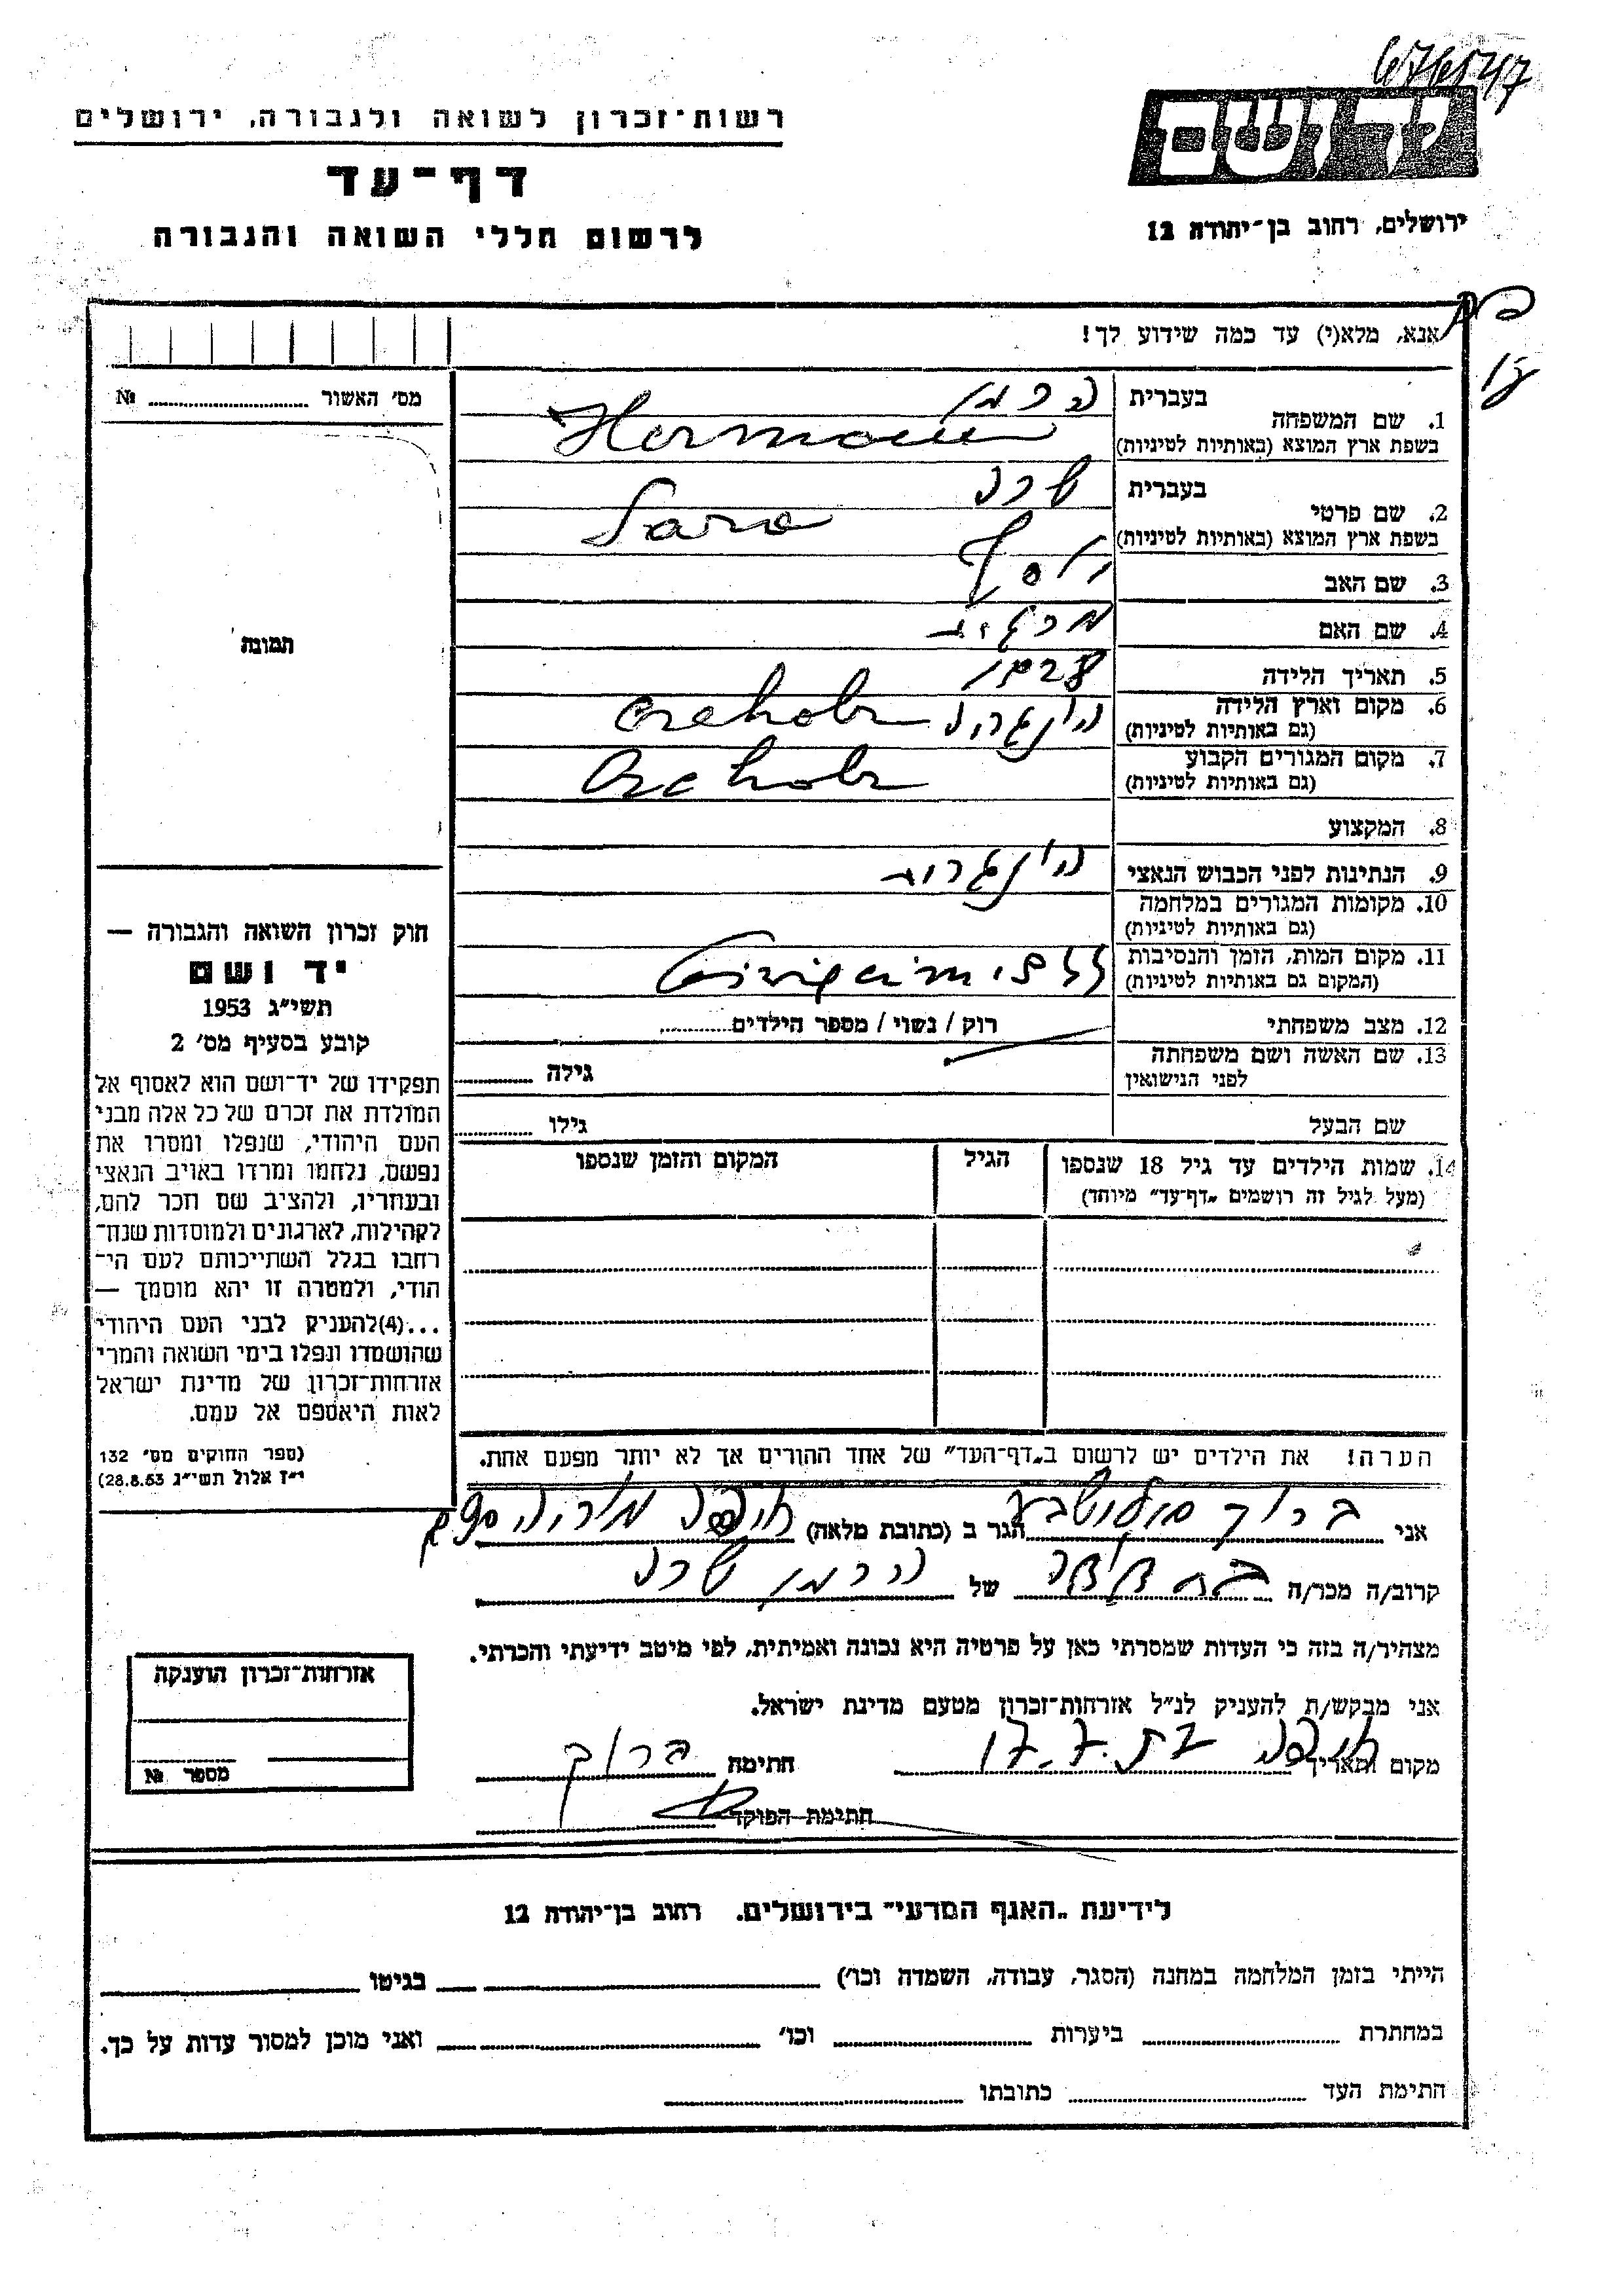 676547
רשות־זכרון לשואה ולגבורה, ירושלים
דף־עד
לרשום חללי השואה והגבורה
יד ושם
ירושלים, רחוב בן־יהודה 12
אנא, מלא(י) עד כמה שידוע לך!
מס' האשור № 
תמונה
1. שם המשפחה בעברית הרמן
בשפת ארץ המוצא (באותיות לטיניות) Hermann
2. שם פרטי בעברית שרה
בשפת ארץ המוצא (באותיות לטיניות) Sara
3. שם האב יוסף
4. שם האם
5. תאריך הלידה
6. מקום וארץ הלידה הונגריה
(גם באותיות לטיניות)
7. מקום המגורים הקבוע
(גם באותיות לטיניות)
8. המקצוע
9. הנתינות לפני הכבוש הנאצי הונגרית
10. מקומות המגורים במלחמה
(גם באותיות לטיניות)
11. מקום המות, הזמן והנסיבות
(המקום גם באותיות לטיניות)
12. מצב משפחתי רוק / נשוי / מספר הילדים
13. שם האשה ושם משפחתה
לפני הנישואין גילה
שם הבעל גילו
14. שמות הילדים עד גיל 18 שנספו הגיל המקום והזמן שנספו
(מעל לגיל זה רושמים „דף־עד" מיוחד)
חוק זכרון השואה והגבורה —
יד ושם
תשי"ג 1953
קובע בסעיף מס' 2
תפקידו של יד־ושם הוא לאסוף אל
המולדת את זכרם של כל אלה מבני
העם היהודי, שנפלו ומסרו את
נפשם, נלחמו ומרדו באויב הנאצי
ובעוזריו, ולהציב שם וזכר להם,
לקהילות, לארגונים ולמוסדות שנח־
רבו בגלל השתייכותם לעם הי־
הודי, ולמטרה זו יהא מוסמך —
...(4)להעניק לבני העם היהודי
שהושמדו ונפלו בימי השואה והמרי
אזרחות־זכרון של מדינת ישראל
לאות היאספם אל עמם.
(ספר החוקים מס' 132
י"ז אלול תשי"ג 28.8.53)
הערה! את הילדים יש לרשום ב„דף־העד" של אחד ההורים אך לא יותר מפעם אחת.
אני ברוך הגר ב (כתובת מלאה) חיפה
קרוב/ה מכר/ה בת דודה של הרמן שרה
מצהיר/ה בזה כי העדות שמסרתי כאן על פרטיה היא נכונה ואמיתית, לפי מיטב ידיעתי והכרתי.
אני מבקש/ת להעניק לנ"ל אזרחות־זכרון מטעם מדינת ישראל.
מקום ותאריך חיפה חתימה ברוך
חתימת הפוקד
אזרחות־זכרון הוענקה
מספר №
לידיעת „האגף המדעי" בירושלים. רחוב בן־יהודה 12
הייתי בזמן המלחמה במחנה (הסגר, עבודה, השמדה וכו') בגיטו
במחתרת ביערות וכו' ואני מוכן למסור עדות על כך.
חתימת העד כתובתו